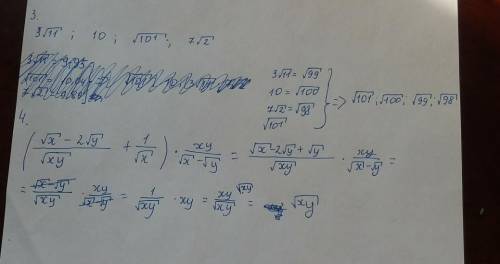 3.
3√11 ; 10 ; √101 ; 7√2
3√11 = √99
10 = √100
7√2 = √98
√101
=> √101 ; √100 ; √99 ; √98
4.
((√x - 2√y)/√xy + 1/√x) · xy/(√x - √y) = (√x - 2√y + √y)/√xy · xy/(√x - √y) =
= (√x - √y)/√xy · xy/(√x - √y) = 1/√xy · xy = xy/√xy = √xy